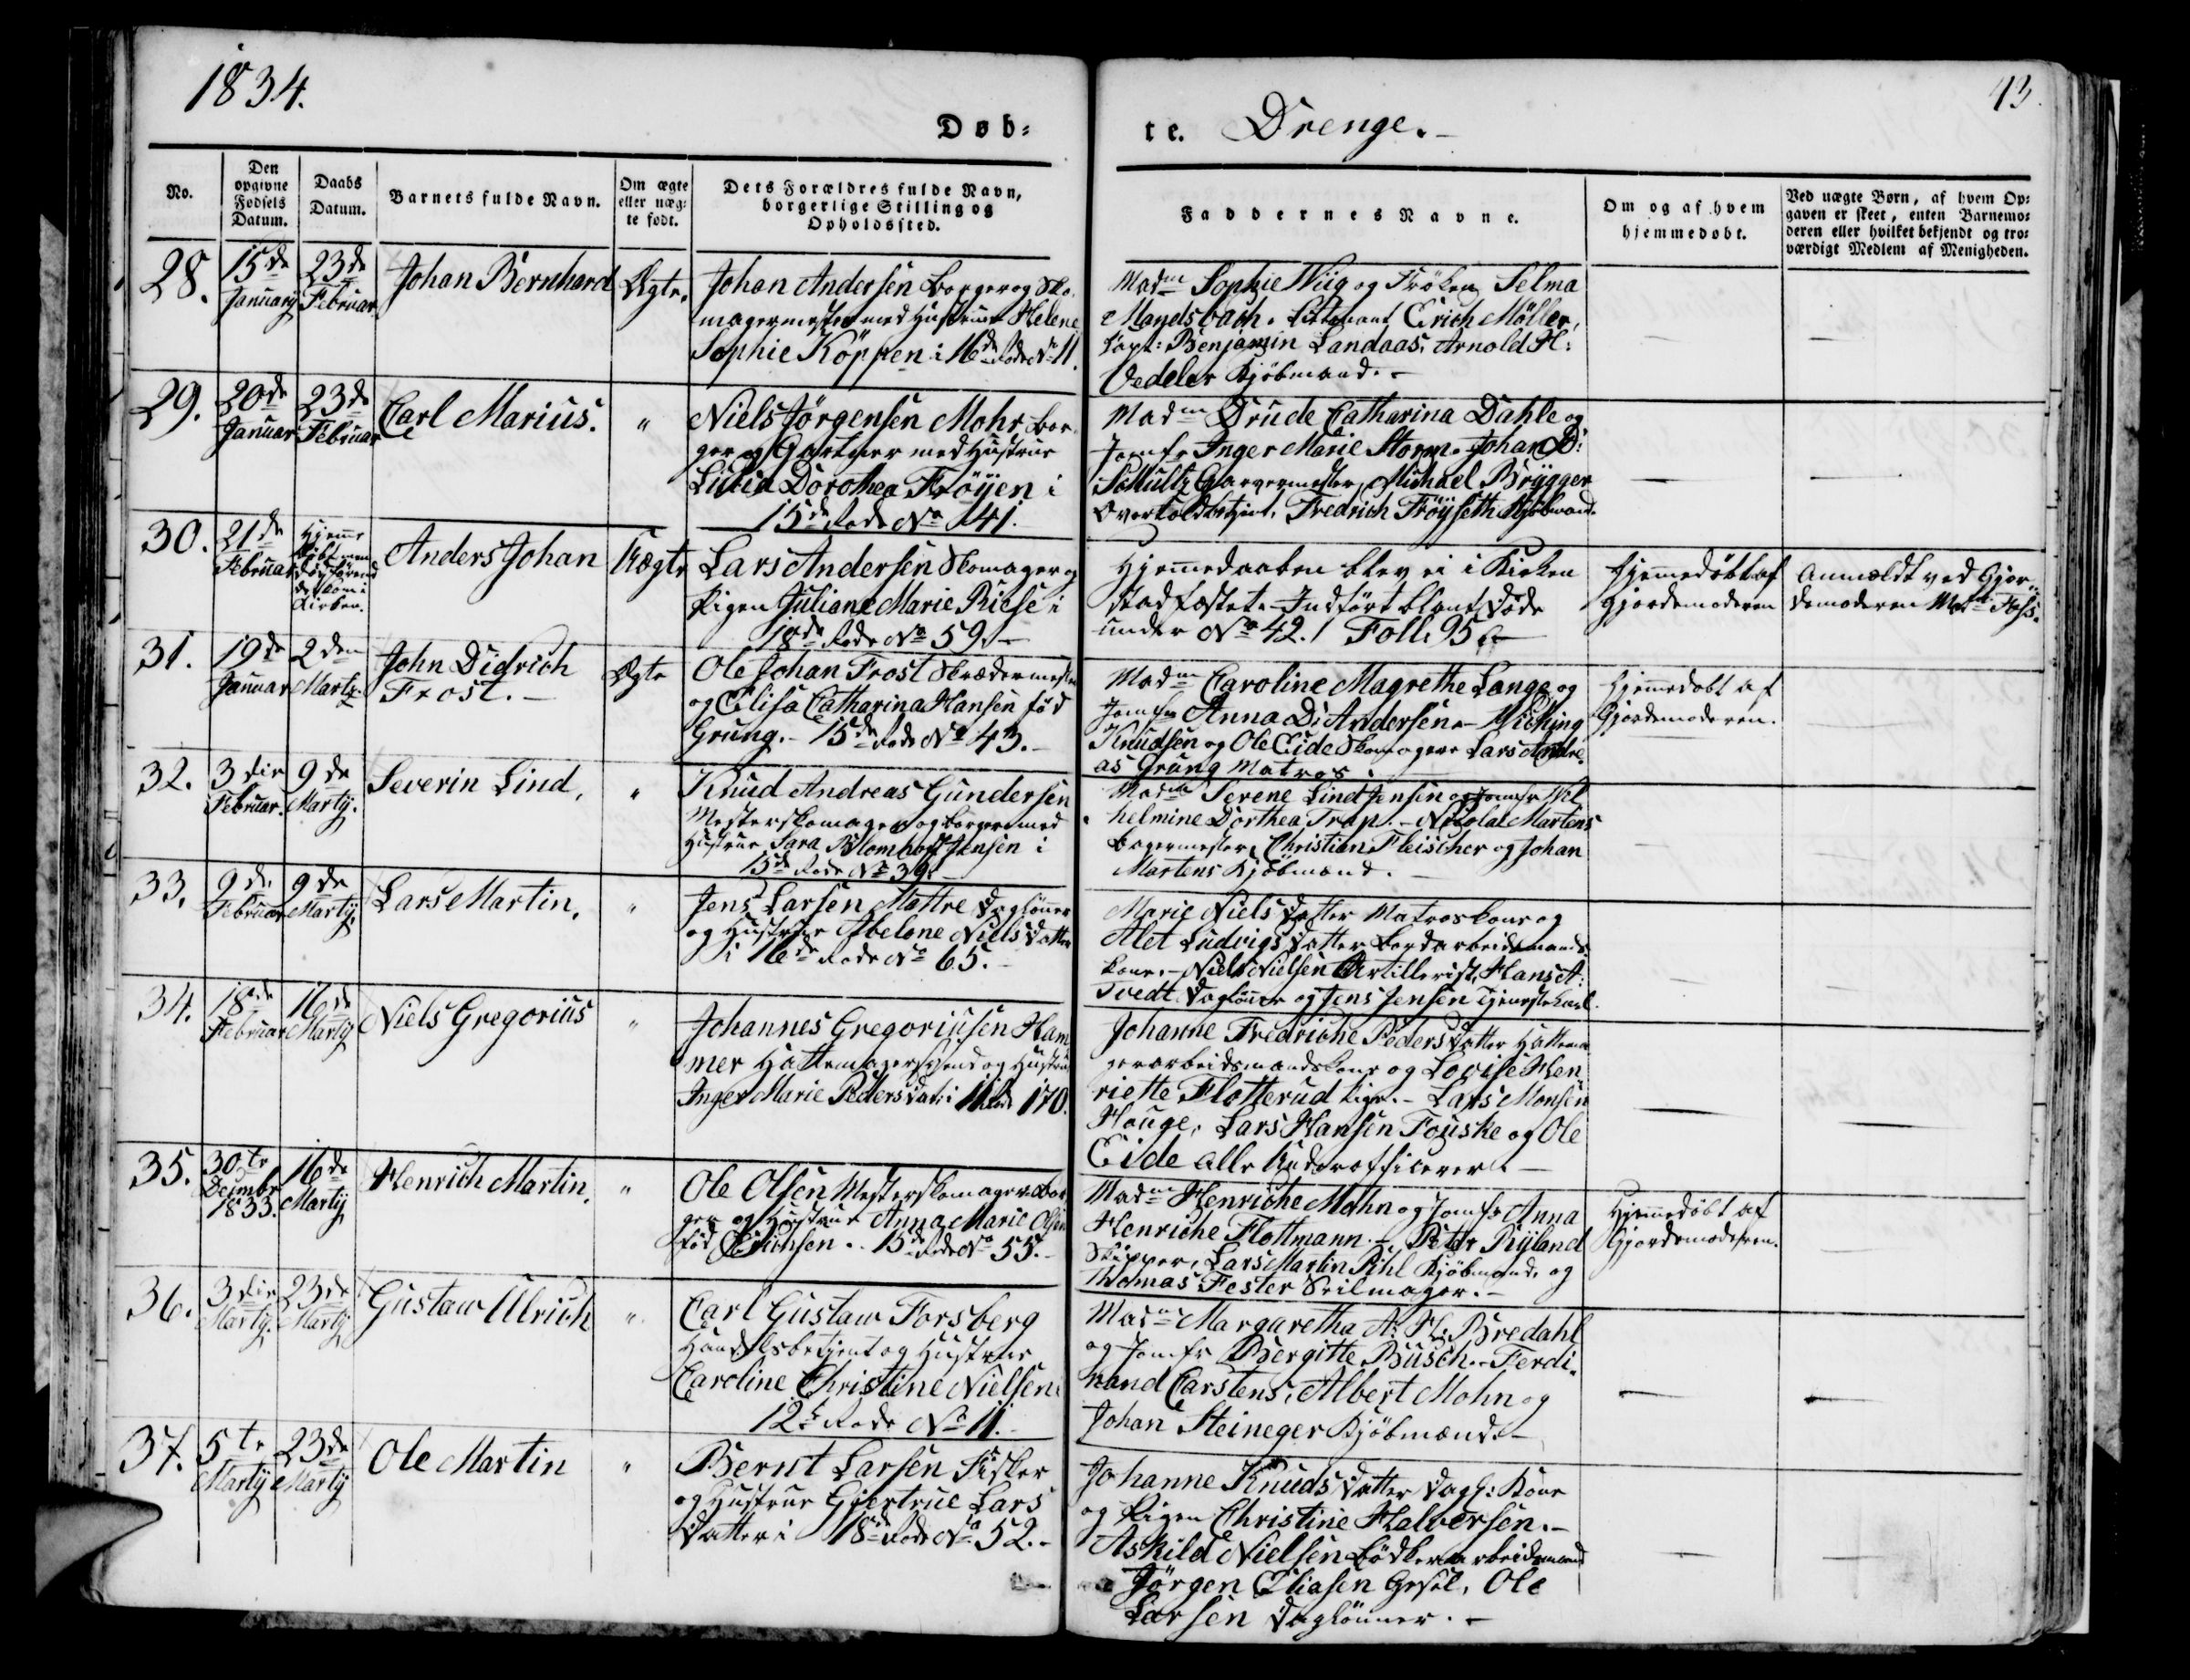 1834.
43.
Døb-
te. Drenge.
No.
Den
opgivne
Fødsels
Datum.
Daabs
Datum.
Barnets fulde Navn.
Om ægte
eller uæg-
te født.
Dets Forældres fulde Navn,
borgerlige Stilling og
Opholdssted.
Faddernes Navne.
Om og af hvem
hjemmedøbt.
Ved uægte Børn, af hvem Op-
gaven er skeet, enten Barnemo-
deren eller hvilket bekjendt og tro-
værdigt Medlem af Menigheden.
28.
15de
Januarij
23de
Februar
Johan Bernhard
Ægte.
Johan Andersen Borger og Sko-
magermester med Hustrue Helene
Sophie Köppen i 16de Rode No 11.
Madm Sophie Wiig og Fröken Selma
Mandsbach. Lieutnant Erich Möller,
Capt: Benjamin Landaas, Arnold H:
Vedeler Kjöbmænd. -
29.
20de
Januar
23de
Februar
Carl Marius.
"
Niels Jörgensen Mohr Bor-
ger og Gartner med Hustrue
Lucia Dorothea Fröyen i
15de Rode No 141.
Madm Drude Catharina Dahle og
Jomfr Inger Marie Storm. Johan D:
Schultz Garvermester, Michael Brygger
Overtoldbetjent, Fredrich Fröyseth Kjöbmand.
30.
21de
Februar
Hjemme
döbt men
döde förend
det kom i
Kirken.
Anders Johan
Uægte
Lars Andersen Skomager og
Pigen Juliane Marie Riese i
18de Rode No 59. -
Hjemmedaaben blev ei i Kirken
stadfæstet. - Indført blant Døde
under No 42. Foll. 95.
Hjemmedöbt af
Gjordemoderen
Anmeldt ved Gjor-
demoderen Madm Foss.
31.
19de
Januar
2den
Marts.
John Didrich
Frost. -
Ægte
Ole Johan Frost Skrædermester
og Elisa Catharina Hansen föd
Grung. - 15de Rode No 43. -
Madm Caroline Magrethe Lange og
Jomfr Anna D: Andersen. - Wicking
Knudsen og Ole Eide Skomagere Lars Andre-
as Grung Matros.
Hjemmedøbt af
Gjordemoderen.
32.
3die
Februar.
9de
Martij.
Severin Lind,
"
Knud Andreas Gundersen
Mesterskomager og Borger med
Hustrue Sara Blomhoff Jensen i
15de Rode No 39. -
Madm Serene Lind Jensen og Jomfr Wil-
helmine Dorthea Trap. - Nicolai Martens
Bagermester, Christian Fleischer og Johan
Martens Kjöbmænd.
33.
9de
Februar
9de
Martij
Lars Martin.
"
Jens Larsen Mattre Daglönner
og Hustrue Abelone Niels Datter
i 16de Rode No 65. -
Marie Niels Datter Matroskone og
Alet Ludvigs Datter Bordarbeidsmands-
kone. - Niels Nielsen Artillerist, Hans A:
Tvedt Daglönner og Jens Jensen Tjenestekarl.
34.
18de
Februar
16de
Martij
Niels Gregorius
"
Johannes Gregoriusen Ham-
mer Hattemagersvend og Hustrue
Inger Marie Peders Dat: i 11te Rode 170.
Johanne Fredriche Peders Datter Hattema-
gerarbeidsmandskone og Lovise Hen-
riette Flotterud Pige. - Lars Monsen
Houge, Lars Hansen Fouske og Ole
Eide alle Underofficerer. -
35.
30te
Decembr
1833.
16de
Martij
Henrich Martin.
"
Ole Olsen Mesterskomager Bor-
ger og Hustrue Anna Marie Olsen
föd Erichsen. 15de Rode No 55. -
Madm Henriche Mohn og Jomfr Anna
Henriche Flottmann. - Peter Ryland
Skipper, Lars Martin Pihl Kjöbmand, og
Thomas Fester Seilmager. -
Hjemmedöbt af
Gjordemoderen.
36.
3die
Martij.
23de
Martij
Gustaw Ulrich
"
Carl Gustaw Forsberg
Handelsbetjent og Hustrue
Caroline Christine Nielsen i
12te Rode No 11. -
Madm Margaretha A: H: Bredahl
og Jomfr Bergitte Busch. - Ferdi-
nand Carstens, Albert Mohn og
Johan Steineger Kjöbmænd. -
37.
5te
Martij
23de
Martij
Ole Martin
"
Bernt Larsen Fisker
og Hustrue Gjertrue Lars
Datter i 18de Rode No 52. -
Johanne Knuds Datter Dagl: Kone
og Pigen Christine Halversen. -
Askild Nielsen Bödkerarbeidsmand
Jörgen Eliasen Gesel, Ole
Larsen Daglönner. -